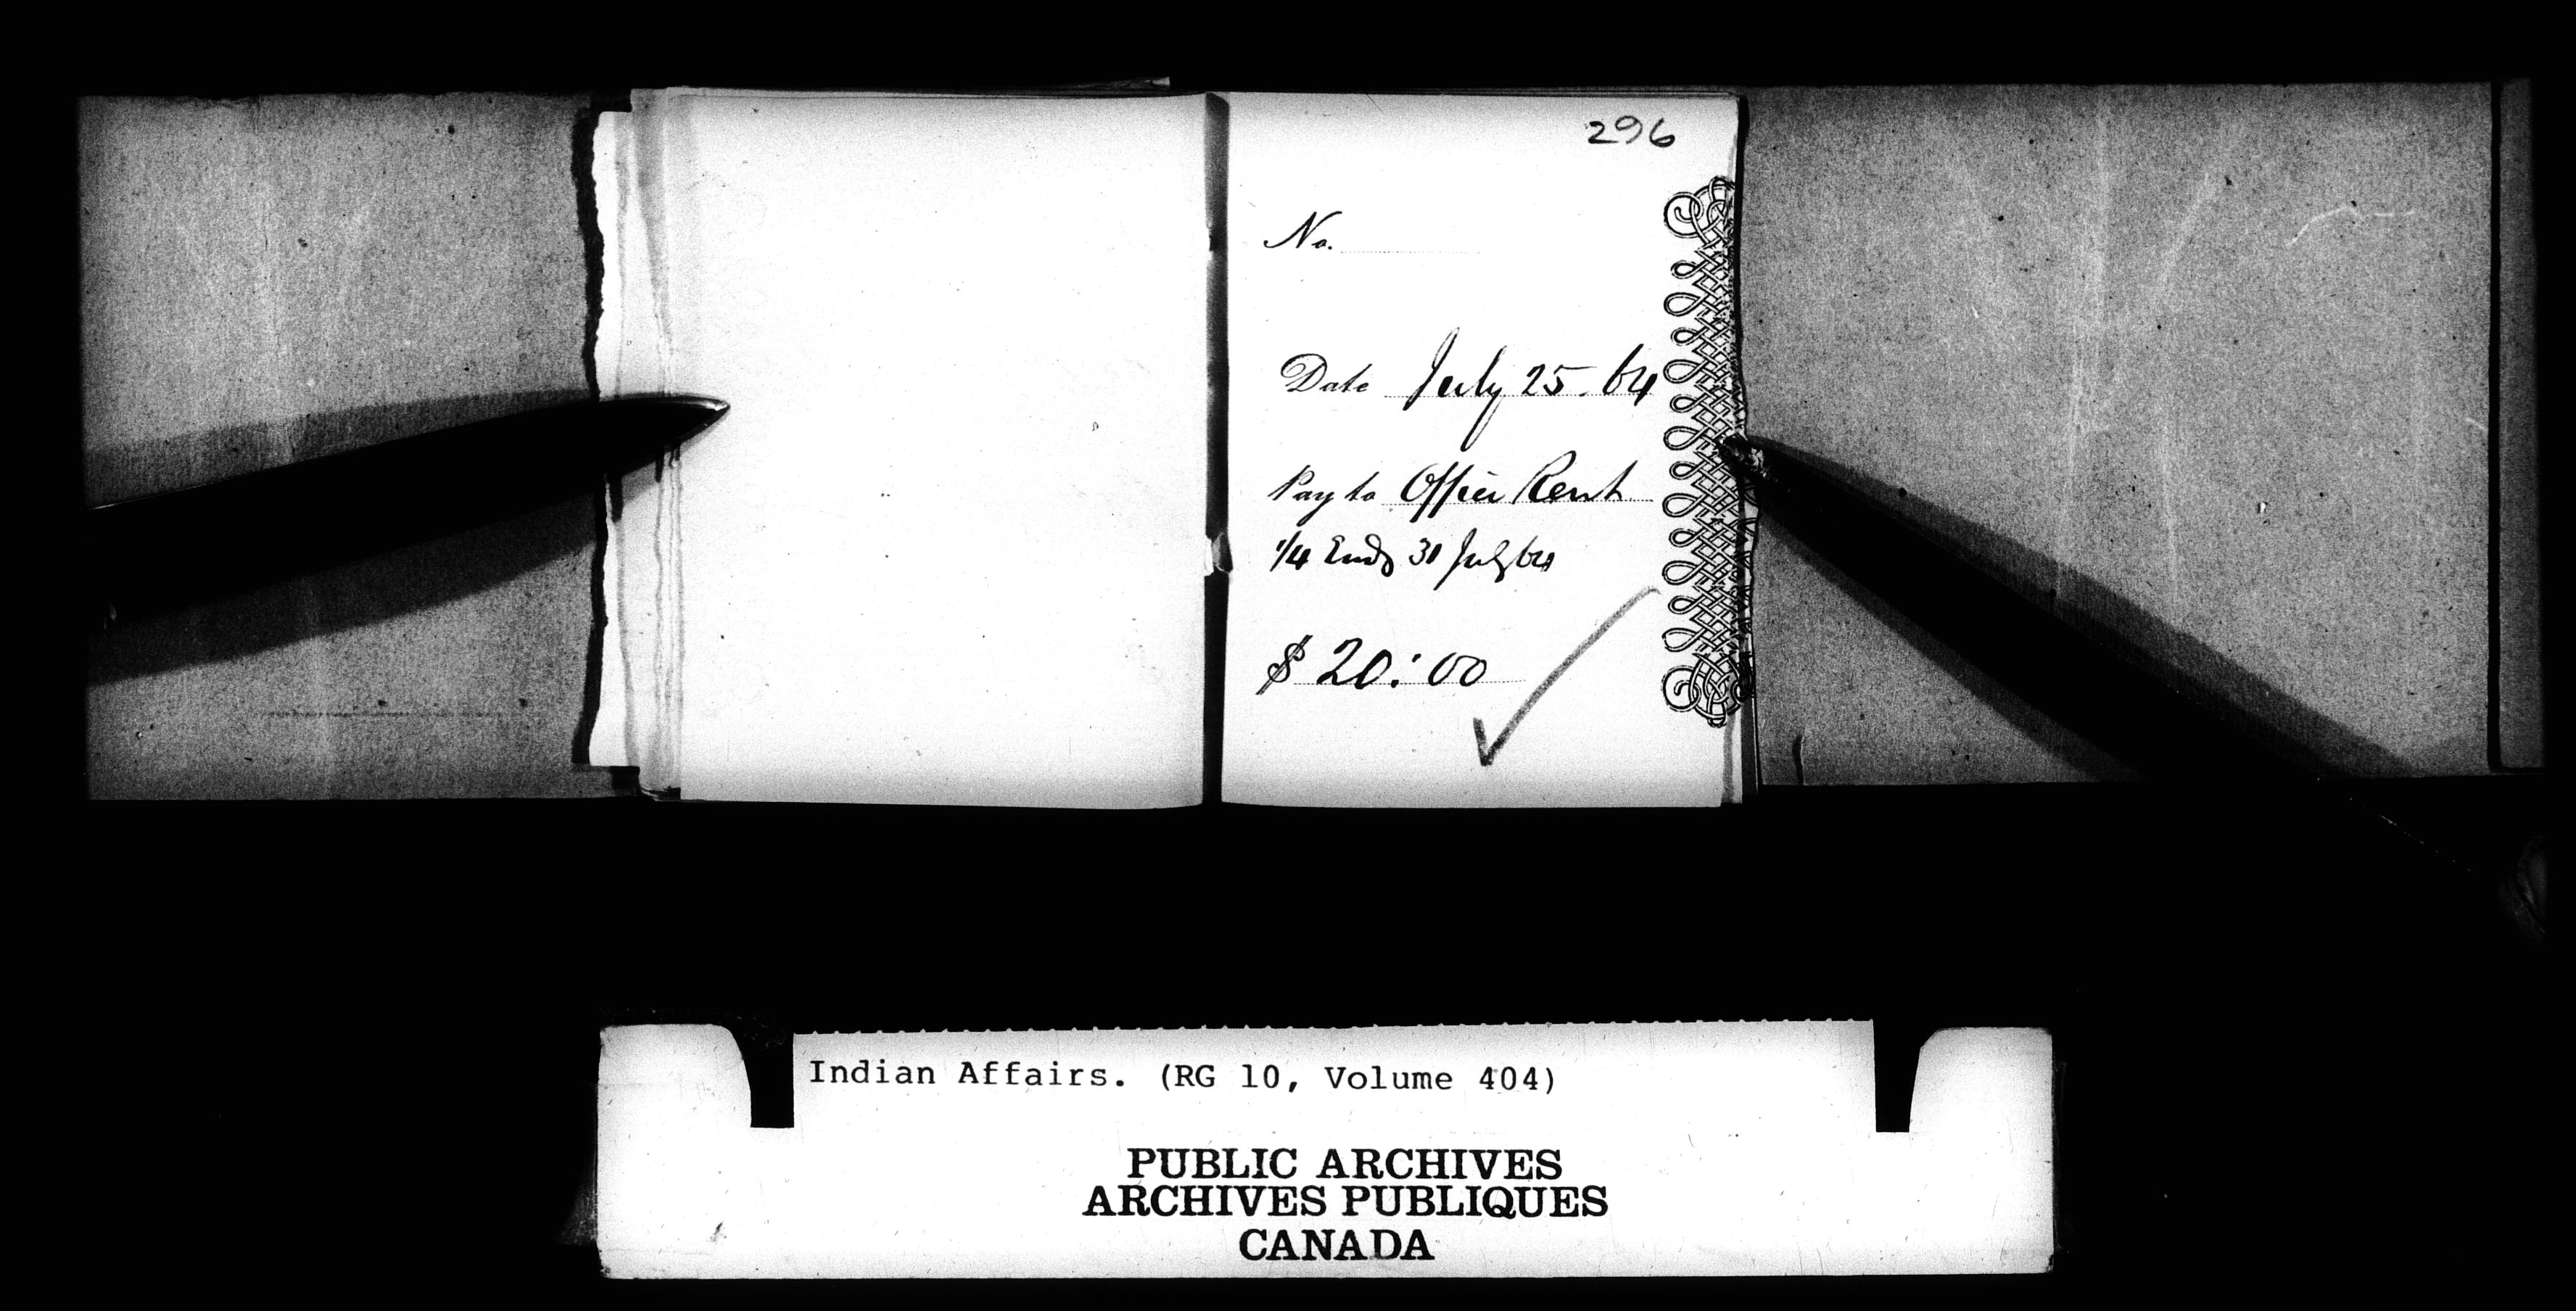 296
No.
Date July 25. 64
Pay to Office Rent
1/4 Endg 31 July 64
$ 20:00
Indian Affairs. (RG 10, Volume 404)
PUBLIC ARCHIVES
ARCHIVES PUBLIQUES
CANADA